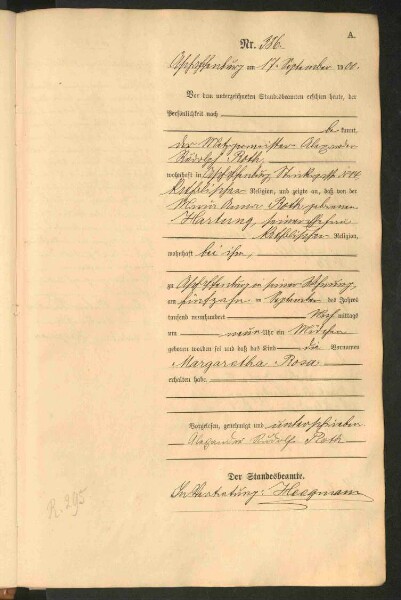 A.
Nr. 316.
Aschaffenburg am 17. September 1900.
Vor dem unterzeichneten Standesbeamten erschien heute, der
Persönlichkeit nach
be kannt,
der Metzgermeister Alexander
Rudolf Roth,
wohnhaft in Aschaffenburg, No 14
katholischer Religion, und zeigte an, daß von der
Maria Anna Roth, geborenen
Hartung, seiner Ehefrau
katholischer Religion,
wohnhaft bei ihm,
zu Aschaffenburg in seiner Wohnung,
am fünfzehn ten September des Jahres
tausend neunhundert Nach mittags
um neun Uhr ein Mädchen
geboren worden sei und daß das Kind die Vornamen
Margaretha Rosa
erhalten habe.
Vorgelesen, genehmigt und unterschrieben
Alexander Rudolf Roth
Der Standesbeamte.
In Vertretung: Heegmann
R. 295